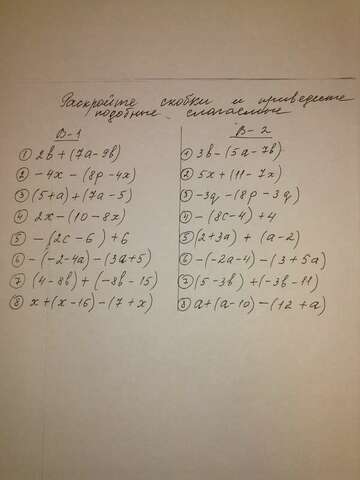 Раскройте скобки и приведите
подобные слагаемые
В-1
① 2в + (7а - 9в)
② - 4х - (8р - 4х)
③ (5 + а) + (7а - 5)
④ 2х - (10 - 8х)
⑤ - (2с - 6) + 6
⑥ - (-2 - 4а) - (3а + 5)
⑦ (4 - 8в) + (-8в - 15)
⑧ х + (х - 16) - (7 + х)
В-2
① 3в - (5а - 7в)
② 5х + (11 - 7х)
③ -3q - (8р - 3q)
④ - (8с - 4) + 4
⑤ (2 + 3а) + (а - 2)
⑥ - (-2а - 4) - (3 + 5а)
⑦ (5 - 3в) + (-3в - 11)
⑧ а + (а - 10) - (12 + а)